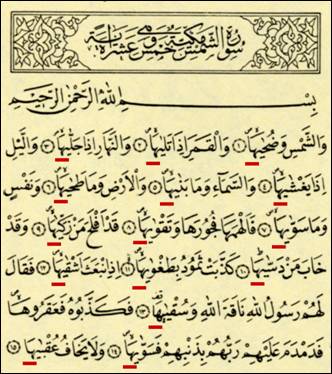 سُورَةُ الشَّمْسِ مَكِّيَّةٌ وَهِيَ خَمْسَ عَشْرَةَ اٰيَةً
بِسْمِ اللّٰهِ الرَّحْمٰنِ الرَّحِيمِ
وَالشَّمْسِ وَضُحٰيهَا ۙ ﴿١﴾ وَالْقَمَرِ اِذَا تَلٰيهَا ۙ ﴿٢﴾ وَالنَّهَارِ اِذَا جَلّٰيهَا ۙ ﴿٣﴾ وَالَّيْلِ
اِذَا يَغْشٰيهَا ۙ ﴿٤﴾ وَالسَّمَٓاءِ وَمَا بَنٰيهَا ۙ ﴿٥﴾ وَالْاَرْضِ وَمَا طَحٰيهَا ۙ ﴿٦﴾ وَنَفْسٍ
وَمَا سَوّٰيهَا ۙ ﴿٧﴾ فَاَلْهَمَهَا فُجُورَهَا وَتَقْوٰيهَا ۙ ﴿٨﴾ قَدْ اَفْلَحَ مَنْ زَكّٰيهَا ۙ ﴿٩﴾ وَقَدْ
خَابَ مَنْ دَسّٰيهَا ۜ ﴿١٠﴾ كَذَّبَتْ ثَمُودُ بِطَغْوٰيهَا ۙ ﴿١١﴾ اِذِ انْبَعَثَ اَشْقٰيهَا ۙ ﴿١٢﴾ فَقَالَ
لَهُمْ رَسُولُ اللّٰهِ نَاقَةَ اللّٰهِ وَسُقْيٰهَا ۜ ﴿١٣﴾ فَكَذَّبُوهُ فَعَقَرُوهَا ۙ
فَدَمْدَمَ عَلَيْهِمْ رَبُّهُمْ بِذَنْبِهِمْ فَسَوّٰيهَا ۙ ﴿١٤﴾ وَلَا يَخَافُ عُقْبٰيهَا ﴿١٥﴾